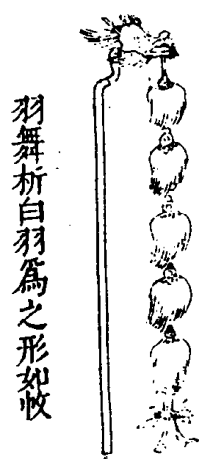 羽舞析白羽爲之形如帗